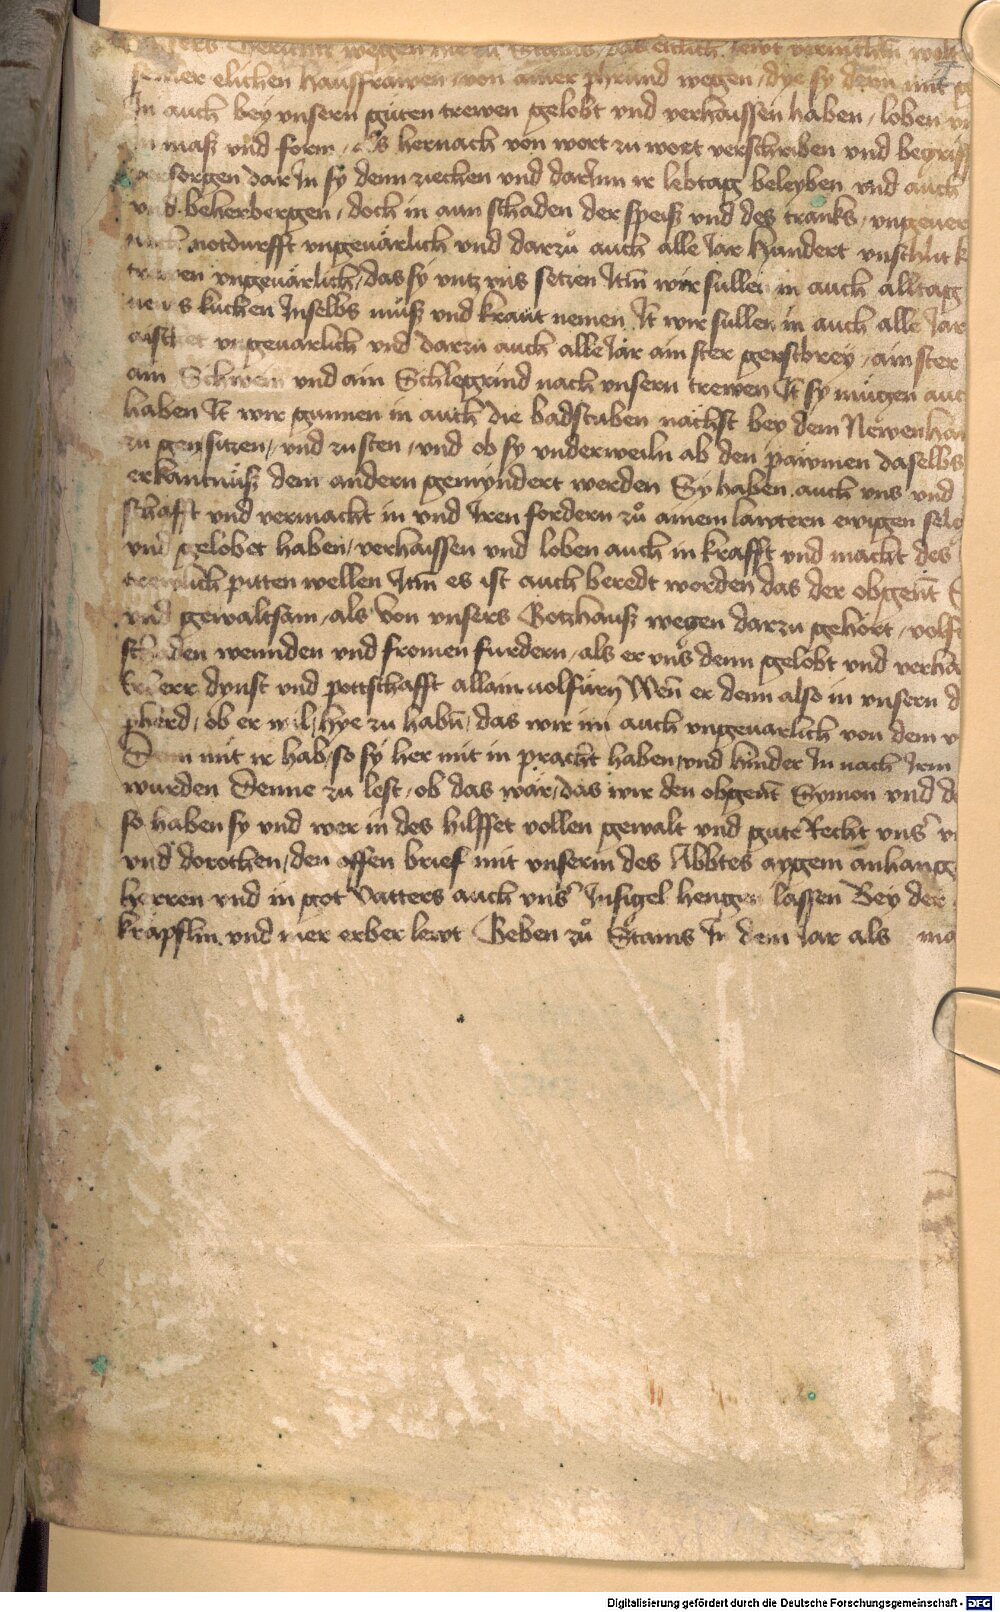 wegen zu Stams das etlich lewt vermachen
seiner elichen hausfrawen von ainer phrund wegen / dye sy denn mit
In auch bey vnsern guten trewen gelobt vnd verhaissen haben / loben
maß vnd form / als hernach von wort zu wort verschriben vnd begriff
versorgen dar In sy denn ziechen vnd darInn ir lebtag beleyben vnd auch
vnd beherbergen / doch in aun schaden der speiß vnd des tranks / vngeuer
nach notdurfft vngeuärlich vnd darzů auch alle Jar hundert vnschlit
trewen vngeuärlich / das sy vntz vns setzen Itm̄ wir sullen in auch alltag
kuchen Inselbs můß vnd kraut nemen It̄ wir sullen in auch alle Jar
vngeuarlich vnd darzu auch alle Jar ain ster gerstbrey / ain ster
ain Schwein vnd ain Schlegrind nach vnsern trewen It̄ sy mügen auc
haben It̄ wir gunnen in auch die badstuben nächst bey dem Newenhau
zu gen sitzen / vnd zu sten / vnd ob sy vnderweiln ab den pawmen daselbs
erkantnuß dem andern gemyndert werden Sy haben auch vns vnd
schafft vnd vermacht in vnd Iren fordern zů ainem lawtern ewigen selg
vnd gelobet haben / verhaissen vnd loben auch in krafft vnd macht des
trewlich pitten wellen Itm̄ es ist auch beredt worden das der obgent̄ S
vnd gewaltsam / als von vnsers Gotzhauß wegen darzu gehört / volf
schaden wennden vnd fromen furdern / als er vns denn gelobt vnd verha
dynst vnd pottschafft allain uolfürn Wen̄ er denn also in vnsern d
pherd / ob er wil / hye zu habn̄ / das wir im auch vngeuarlich von dem v
Denn mit ir hab / so sy her mit in pracht haben / vnd kinder In nach Irm
wurden Denne zu lest / ob das wär / das wir den obgent̄ Symon vnd d
so haben sy vnd wer in des hilffet vollen gewalt vnd gute Recht vns
vnd dorothen / den offen brief mit vnserm des Abbtes aygem anhang
herren vnd in got Vatters auch vns Insigel hengen lassen Bey der
krapflin vnd mer erber lewt Geben zů Stams In dem Jar als ma
Digitalisierung gefördert durch die Deutsche Forschungsgemeinschaft - DFG